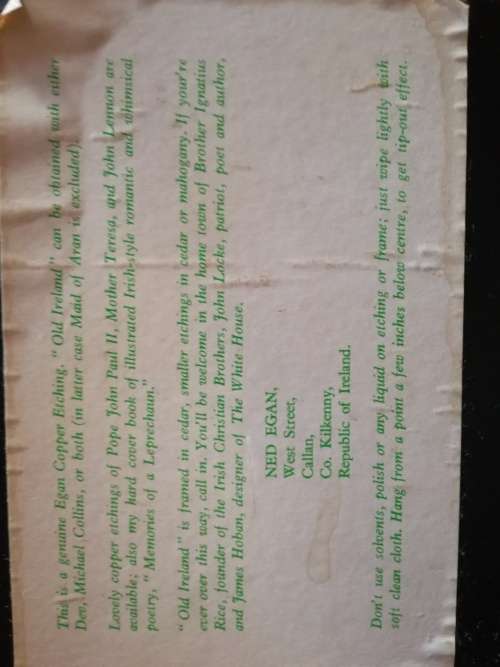 This is a genuine Egan Copper Etching. "Old Ireland" can be obtained with either
Dev, Michael Collins, or both (in latter case Maid of Aran is excluded).
Lovely copper etchings of Pope John Paul II, Mother Teresa, and John Lennon are
available; also my hard cover book of illustrated Irish-style romantic and whimsical
poetry, "Memories of a Leprechaun."
"Old Ireland" is framed in cedar, smaller etchings in cedar or mahogany. If your're
ever over this way, call in. You'll be welcome in the home town of Brother Ignatius
Rice, founder of the Irish Christian Brothers, John Locke, patriot, poet and author,
and James Hoban, designer of The White House.
NED EGAN,
West Street,
Callan,
Co. Kilkenny,
Republic of Ireland.
Don't use solvents, polish or any liquid on etching or frame; just wipe lightly with
soft clean cloth. Hang from a point a few inches below centre, to get tip-out effect.